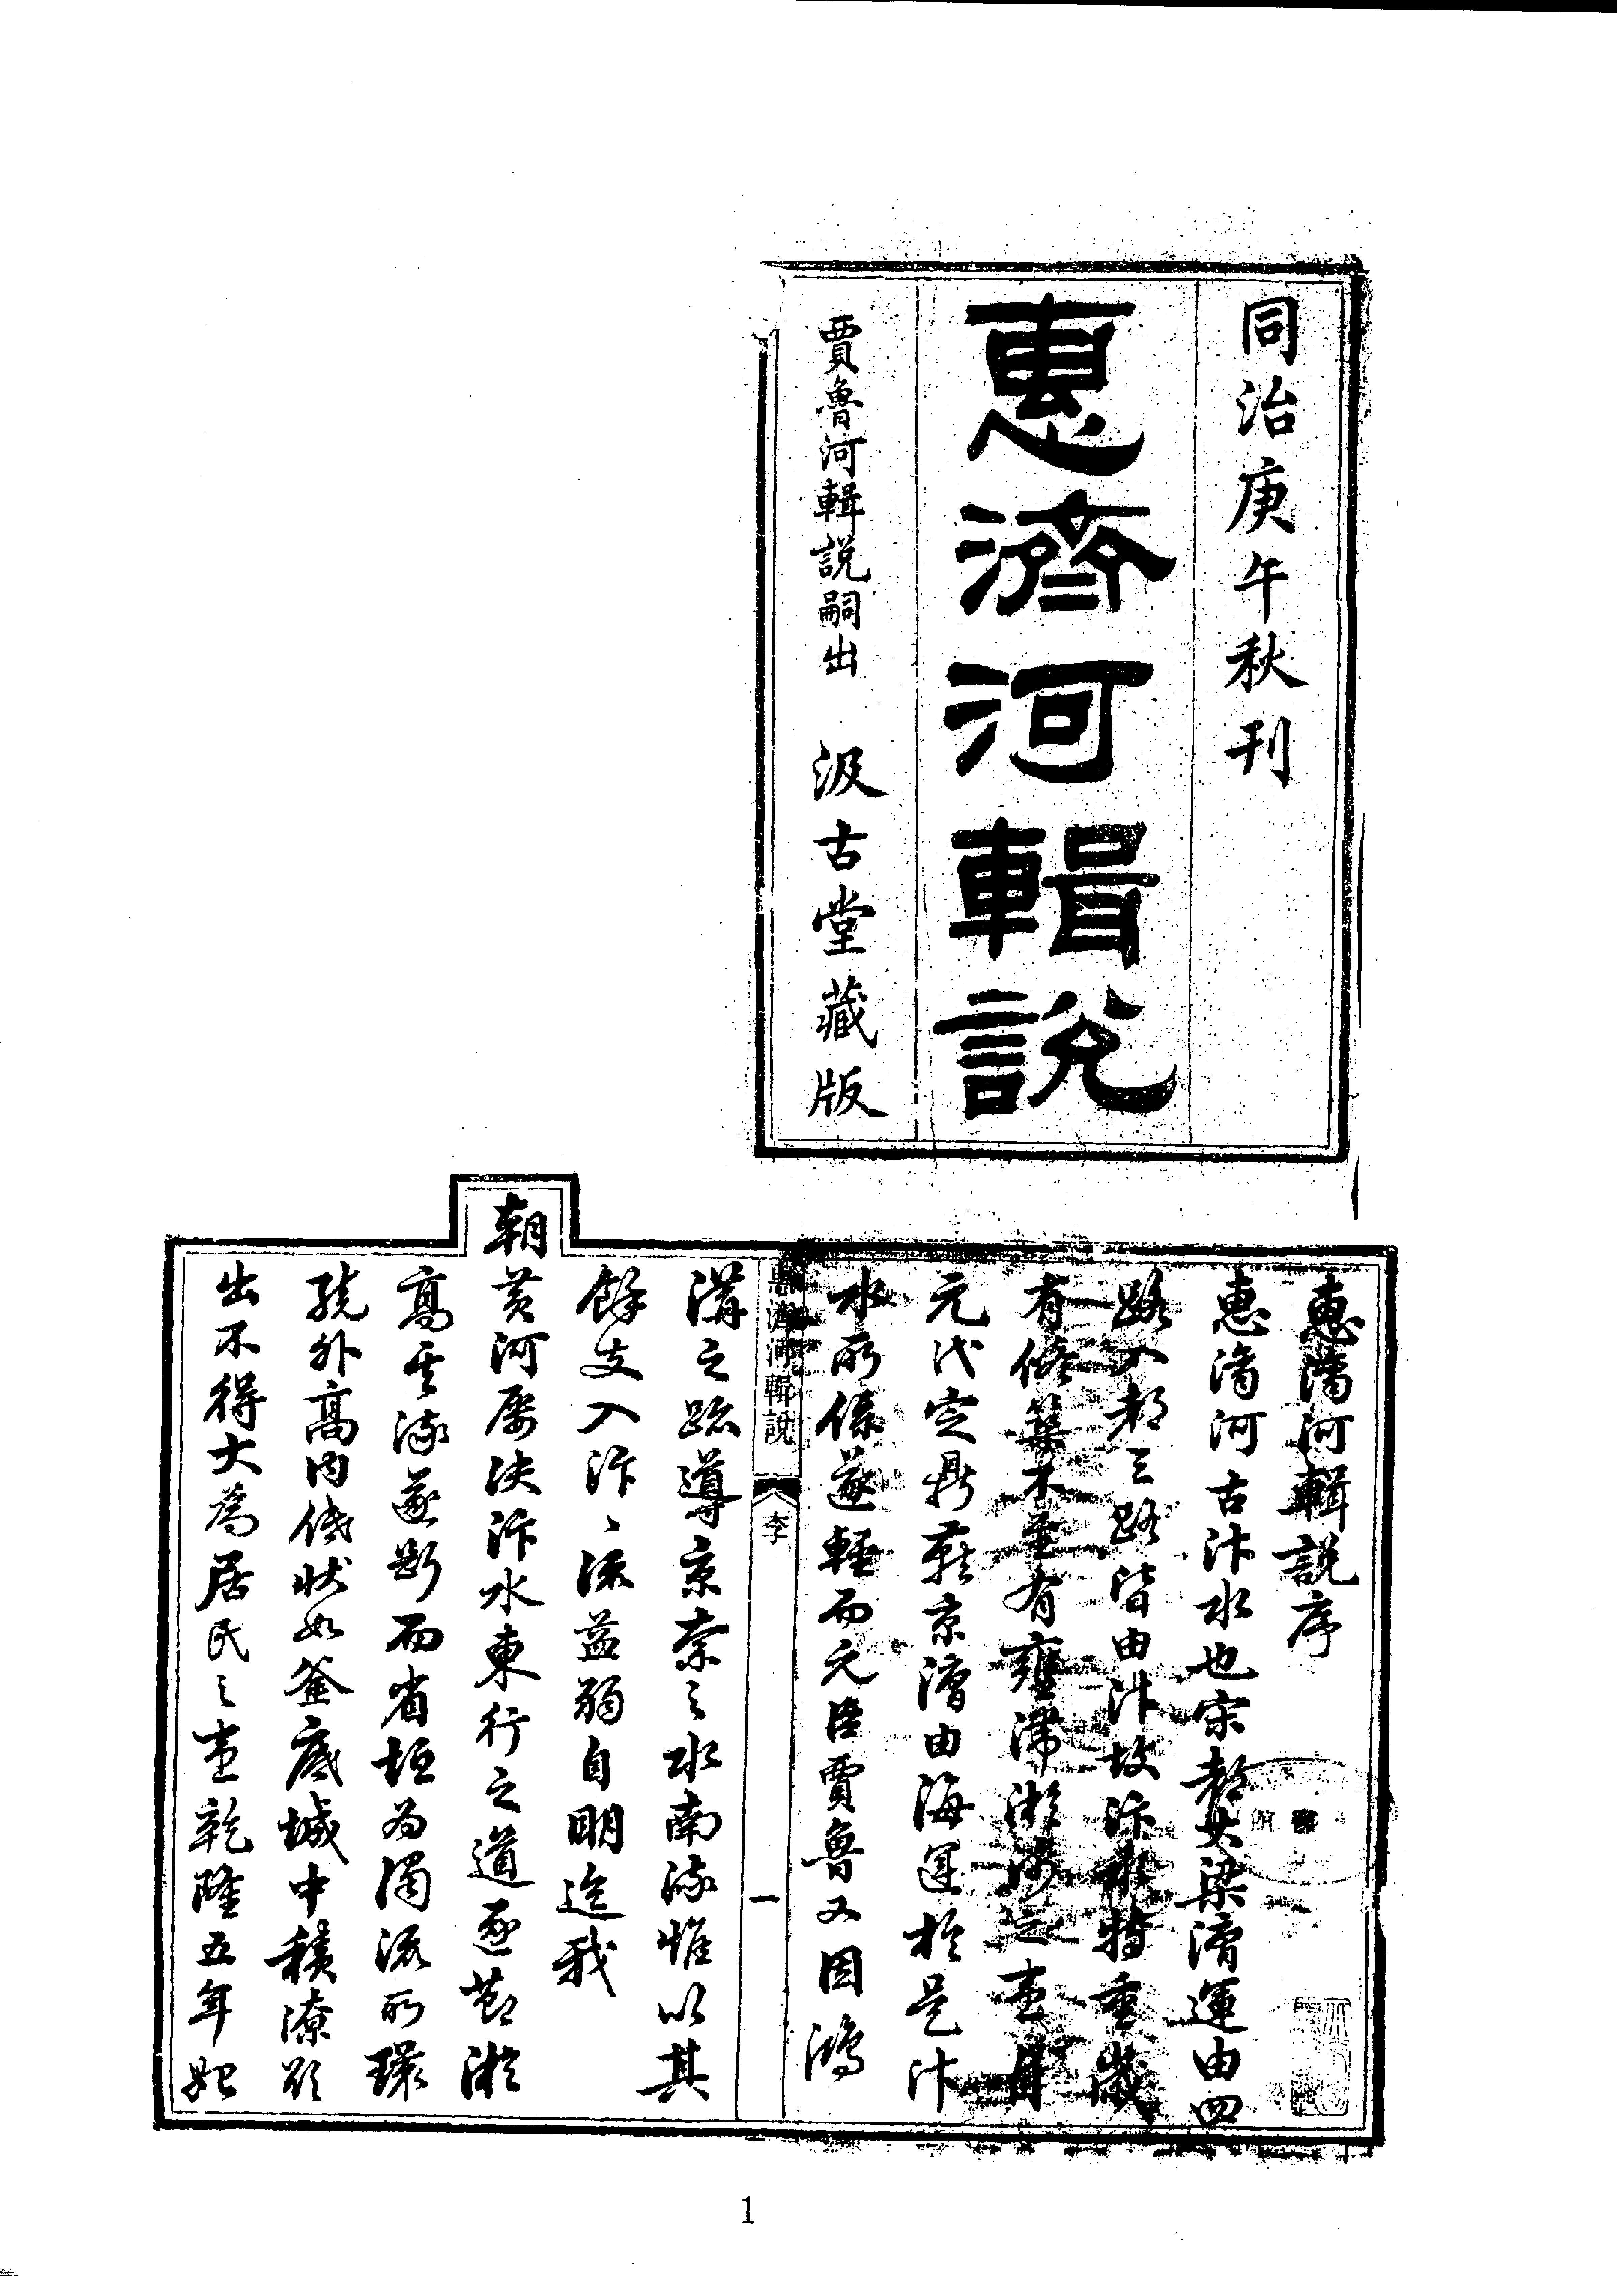 同治庚午秋刊
惠濟河輯說
賈魯河輯說嗣出 汲古堂藏版
惠濟河輯説序
惠濟河古汴水也宋都大梁漕運由四
路入都三路皆由汴故汴水特重歲
有修築不至有壅滯淤淺之患
元代定鼎燕京漕由海運於是汴
水所係遂輕而元臣賈魯又因鴻
惠濟河輯說 李 一
溝之跡導京索之水南流惟以其
餘支入汴、流益弱自明迄我
朝
黃河屢決汴水東行之道逐節淤
高其流遂斷而省垣為濁流所環
繞外高內低狀如釜底城中積潦欲
出不得大為居民之患乾隆五年始
1